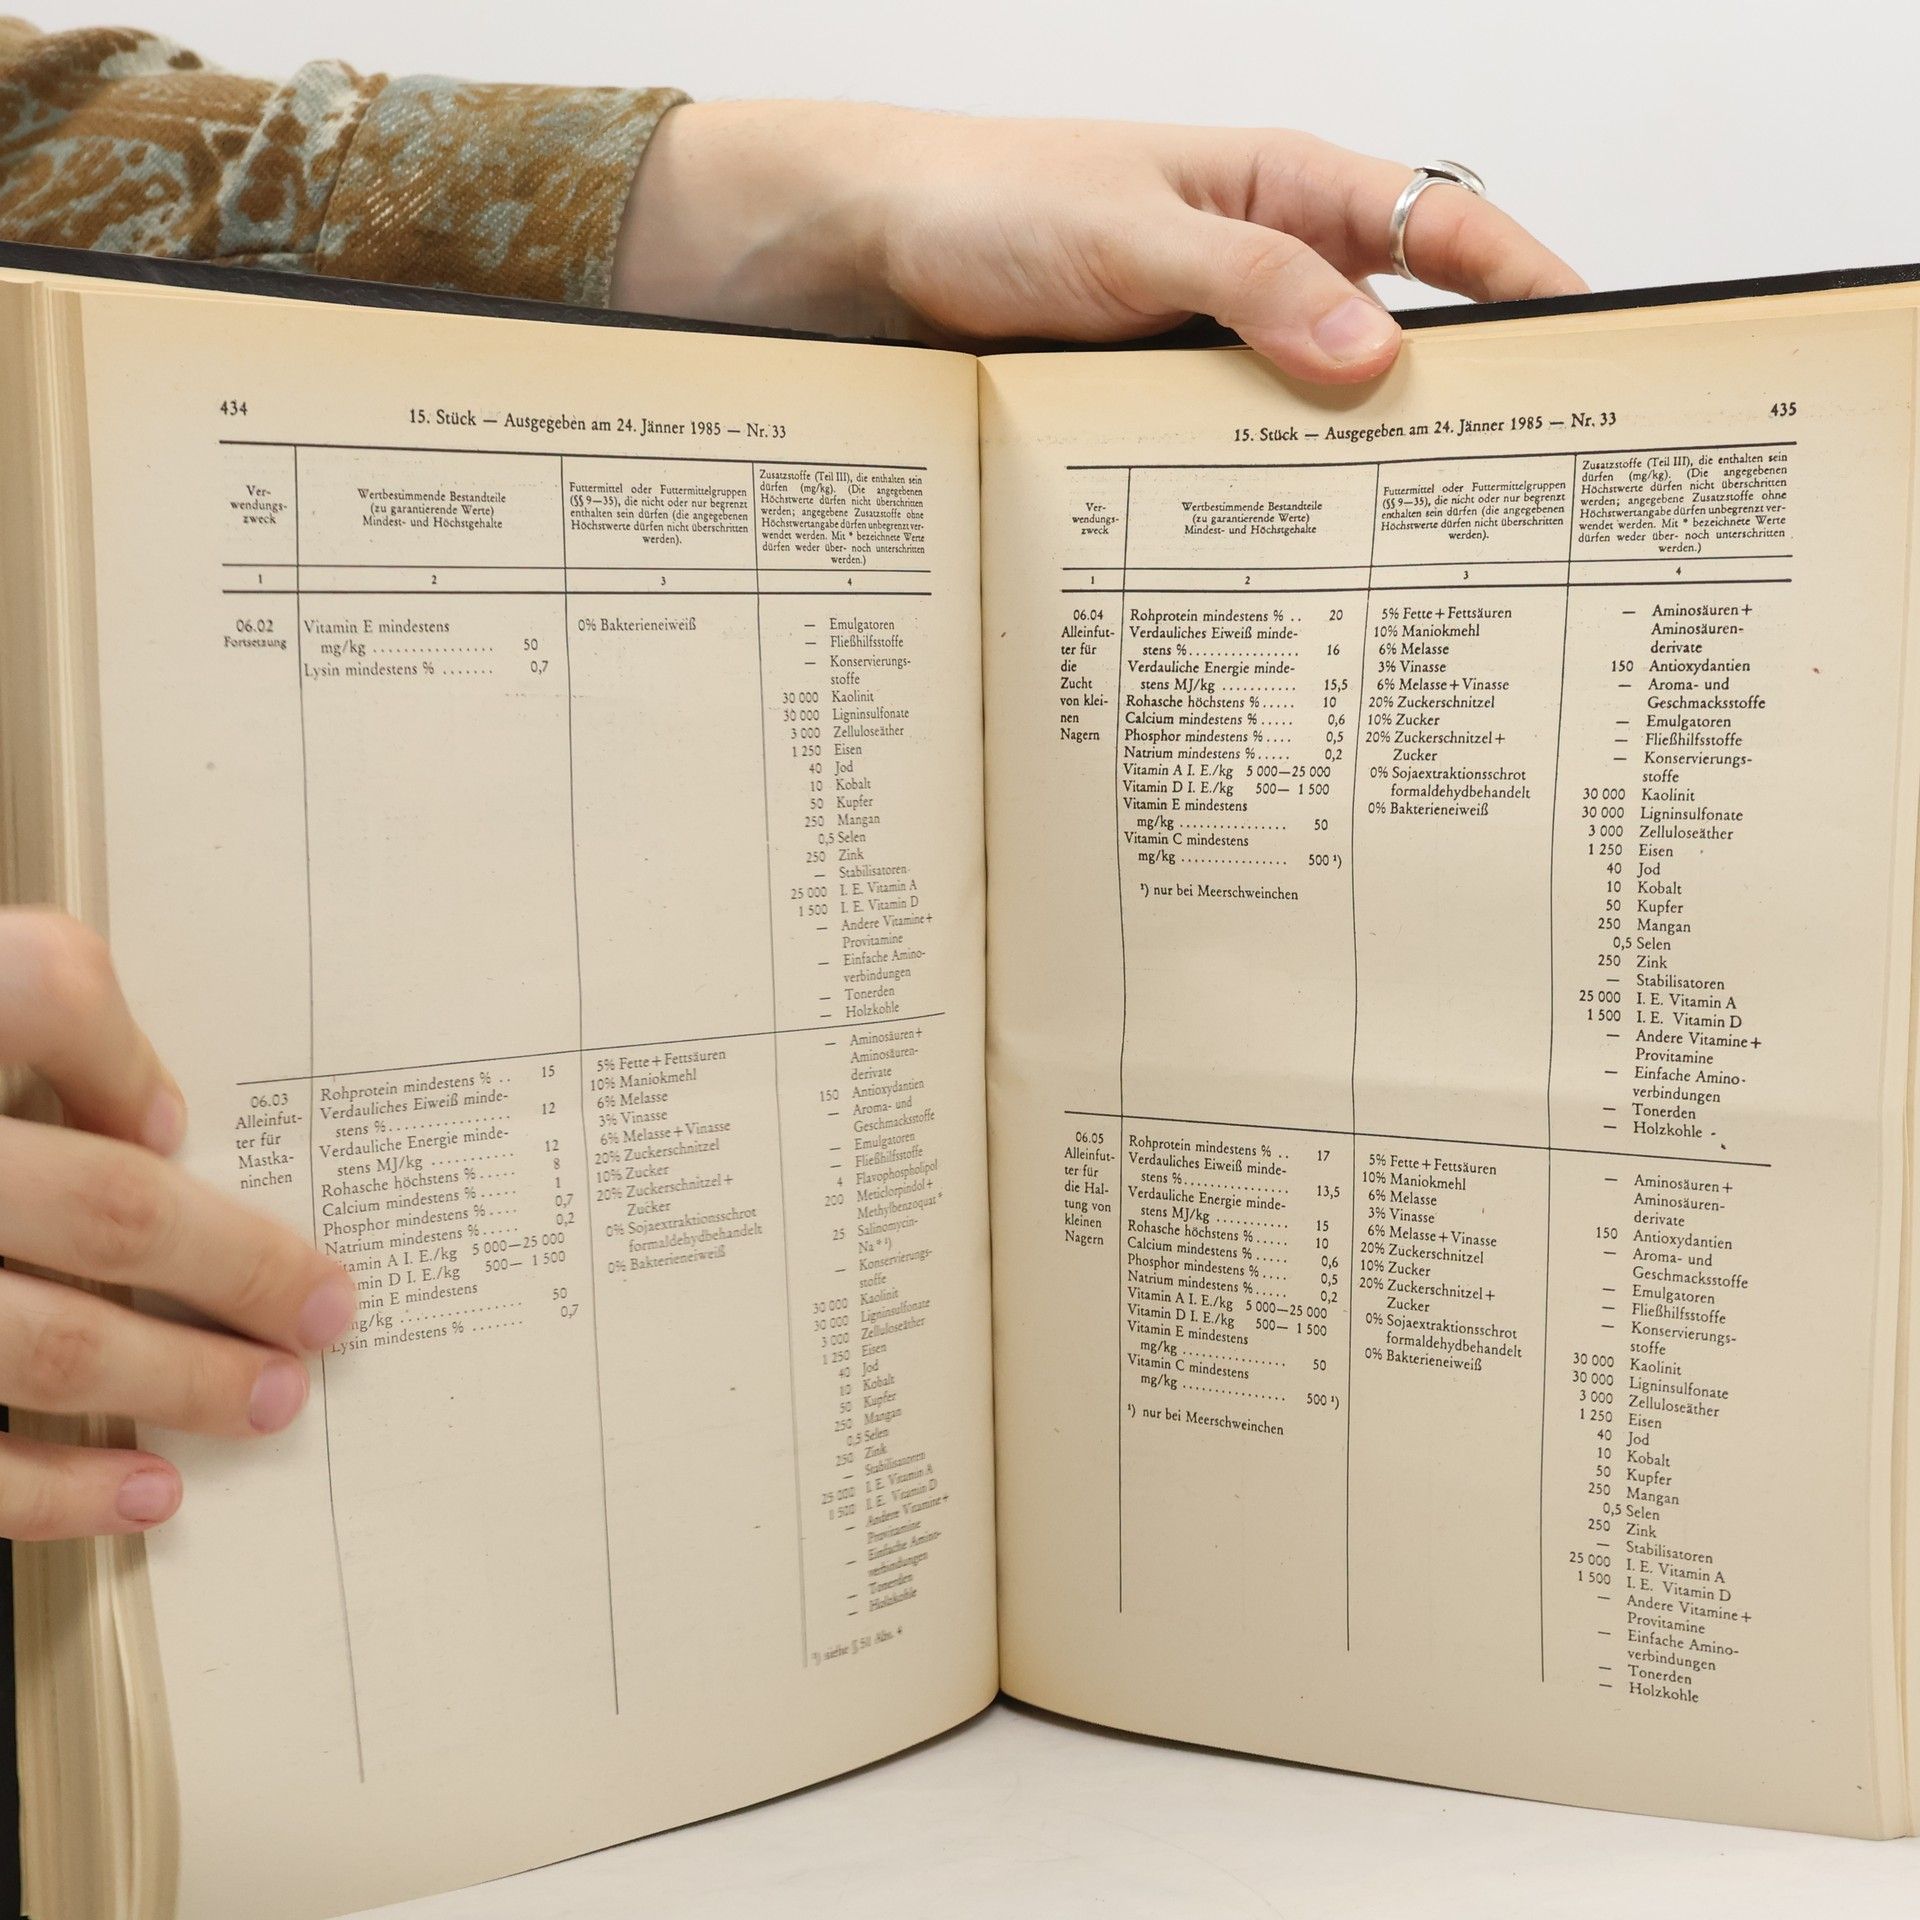 434
15. Stück — Ausgegeben am 24. Jänner 1985 — Nr. 33
Ver-
wendungs-
zweck
Wertbestimmende Bestandteile
(zu garantierende Werte)
Mindest- und Höchstgehalte
Futtermittel oder Futtermittelgruppen
(§§ 9—35), die nicht oder nur begrenzt
enthalten sein dürfen (die angegebenen
Höchstwerte dürfen nicht überschritten
werden).
Zusatzstoffe (Teil III), die enthalten sein
dürfen (mg/kg). (Die angegebenen
Höchstwerte dürfen nicht überschritten
werden; angegebene Zusatzstoffe ohne
Höchstwertangabe dürfen unbegrenzt ver-
wendet werden. Mit * bezeichnete Werte
dürfen weder über- noch unterschritten
werden.)
1
2
3
4
06.02
Fortsetzung
Vitamin E mindestens
mg/kg ................ 50
Lysin mindestens % ....... 0,7
0% Bakterieneiweiß
— Emulgatoren
— Fließhilfsstoffe
— Konservierungs-
stoffe
30 000 Kaolinit
30 000 Ligninsulfonate
3 000 Zelluloseäther
1 250 Eisen
40 Jod
10 Kobalt
50 Kupfer
250 Mangan
0,5 Selen
250 Zink
— Stabilisatoren
25 000 I. E. Vitamin A
1 500 I. E. Vitamin D
— Andere Vitamine+
Provitamine
— Einfache Amino-
verbindungen
— Tonerden
— Holzkohle
06.03
Alleinfut-
ter für
Mastka-
ninchen
Rohprotein mindestens % .. 15
Verdauliches Eiweiß minde-
stens %................ 12
Verdauliche Energie minde-
stens MJ/kg ........... 12
Rohasche höchstens %..... 8
Calcium mindestens %..... 1
Phosphor mindestens %.... 0,7
Natrium mindestens %..... 0,2
itamin A I. E./kg 5 000—25 000
min D I. E./kg 500— 1 500
min E mindestens
mg/kg ................ 50
Lysin mindestens % ....... 0,7
5% Fette+Fettsäuren
10% Maniokmehl
6% Melasse
3% Vinasse
6% Melasse+Vinasse
20% Zuckerschnitzel
10% Zucker
20% Zuckerschnitzel+
Zucker
0% Sojaextraktionsschrot
formaldehydbehandelt
0% Bakterieneiweiß
— Aminosäuren+
Aminosäuren-
derivate
150 Antioxydantien
— Aroma- und
Geschmacksstoffe
— Emulgatoren
— Fließhilfsstoffe
4 Flavophospholipol
200 Meticlorpindol+
Methylbenzoquat*
25 Salinomycin-
Na*¹)
— Konservierungs-
stoffe
30 000 Kaolinit
30 000 Ligninsulfonate
3 000 Zelluloseäther
1 250 Eisen
40 Jod
10 Kobalt
50 Kupfer
250 Mangan
0,5 Selen
250 Zink
— Stabilisatoren
25 000 I. E. Vitamin A
1 500 I. E. Vitamin D
— Andere Vitamine+
Provitamine
— Einfache Amino-
verbindungen
— Tonerden
— Holzkohle
¹) siehe § 50 Abs. 4
435
15. Stück — Ausgegeben am 24. Jänner 1985 — Nr. 33
Ver-
wendungs-
zweck
Wertbestimmende Bestandteile
(zu garantierende Werte)
Mindest- und Höchstgehalte
Futtermittel oder Futtermittelgruppen
(§§ 9—35), die nicht oder nur begrenzt
enthalten sein dürfen (die angegebenen
Höchstwerte dürfen nicht überschritten
werden).
Zusatzstoffe (Teil III), die enthalten sein
dürfen (mg/kg). (Die angegebenen
Höchstwerte dürfen nicht überschritten
werden; angegebene Zusatzstoffe ohne
Höchstwertangabe dürfen unbegrenzt ver-
wendet werden. Mit * bezeichnete Werte
dürfen weder über- noch unterschritten
werden.)
1
2
3
4
06.04
Alleinfut-
ter für
die
Zucht
von klei-
nen
Nagern
Rohprotein mindestens % .. 20
Verdauliches Eiweiß minde-
stens %................ 16
Verdauliche Energie minde-
stens MJ/kg ........... 15,5
Rohasche höchstens %..... 10
Calcium mindestens %..... 0,6
Phosphor mindestens %.... 0,5
Natrium mindestens %..... 0,2
Vitamin A I. E./kg 5 000—25 000
Vitamin D I. E./kg 500— 1 500
Vitamin E mindestens
mg/kg ................ 50
Vitamin C mindestens
mg/kg ................ 500 ¹)
¹) nur bei Meerschweinchen
5% Fette+Fettsäuren
10% Maniokmehl
6% Melasse
3% Vinasse
6% Melasse+Vinasse
20% Zuckerschnitzel
10% Zucker
20% Zuckerschnitzel+
Zucker
0% Sojaextraktionsschrot
formaldehydbehandelt
0% Bakterieneiweiß
— Aminosäuren+
Aminosäuren-
derivate
150 Antioxydantien
— Aroma- und
Geschmacksstoffe
— Emulgatoren
— Fließhilfsstoffe
— Konservierungs-
stoffe
30 000 Kaolinit
30 000 Ligninsulfonate
3 000 Zelluloseäther
1 250 Eisen
40 Jod
10 Kobalt
50 Kupfer
250 Mangan
0,5 Selen
250 Zink
— Stabilisatoren
25 000 I. E. Vitamin A
1 500 I. E. Vitamin D
— Andere Vitamine+
Provitamine
— Einfache Amino-
verbindungen
— Tonerden
— Holzkohle
06.05
Alleinfut-
ter für
die Hal-
tung von
kleinen
Nagern
Rohprotein mindestens % .. 17
Verdauliches Eiweiß minde-
stens %................ 13,5
Verdauliche Energie minde-
stens MJ/kg ........... 15
Rohasche höchstens %..... 10
Calcium mindestens %..... 0,6
Phosphor mindestens %.... 0,5
Natrium mindestens %..... 0,2
Vitamin A I. E./kg 5 000—25 000
Vitamin D I. E./kg 500— 1 500
Vitamin E mindestens
mg/kg ................ 50
Vitamin C mindestens
mg/kg ................ 500 ¹)
¹) nur bei Meerschweinchen
5% Fette+Fettsäuren
10% Maniokmehl
6% Melasse
3% Vinasse
6% Melasse+Vinasse
20% Zuckerschnitzel
10% Zucker
20% Zuckerschnitzel+
Zucker
0% Sojaextraktionsschrot
formaldehydbehandelt
0% Bakterieneiweiß
— Aminosäuren+
Aminosäuren-
derivate
150 Antioxydantien
— Aroma- und
Geschmacksstoffe
— Emulgatoren
— Fließhilfsstoffe
— Konservierungs-
stoffe
30 000 Kaolinit
30 000 Ligninsulfonate
3 000 Zelluloseäther
1 250 Eisen
40 Jod
10 Kobalt
50 Kupfer
250 Mangan
0,5 Selen
250 Zink
— Stabilisatoren
25 000 I. E. Vitamin A
1 500 I. E. Vitamin D
— Andere Vitamine+
Provitamine
— Einfache Amino-
verbindungen
— Tonerden
— Holzkohle